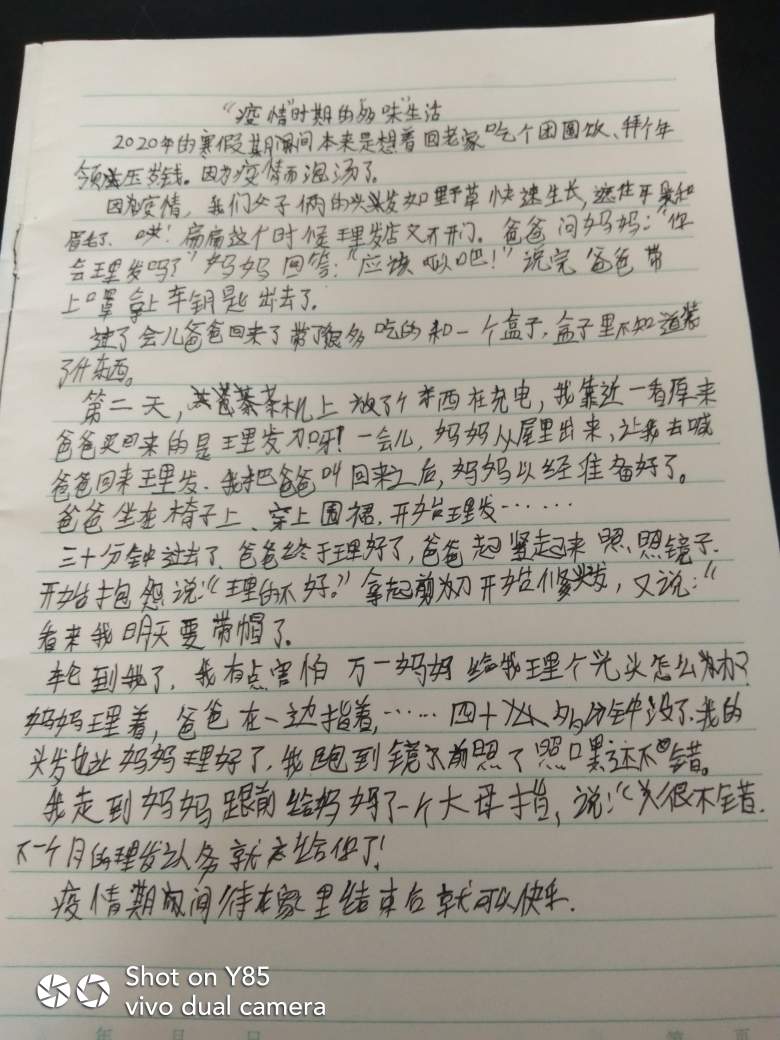 “疫情”时期的“多味”生活
2020年的寒假期间本来是想着回老家吃个团圆饭、拜个年
领压岁钱。因为疫情而泡汤了。
因为疫情，我们父子俩的头发如野草快速生长，遮住耳朵和
眉毛了、哎！偏偏这个时候理发店又不开门。爸爸问妈妈：“你
会理发吗了”妈妈回答：“应该可以吧！”说完爸爸带
上口罩拿上车钥匙出去了.
过了会儿爸爸回来了带了很多吃的和一个盒子，盒子里不知道装
了什东西。
第二天，茶机上放了个东西在充电，我靠近一看原来
爸爸买回来的是理发刀呀！一会儿，妈妈从屋里出来，让我去喊
爸爸回来理发．我把爸爸叫回来之后，妈妈以经准备好了。
爸爸坐在椅子上、穿上围裙，开始理发……
三十分钟过去了．爸爸终于理好了，爸爸起紧起来照照镜子．
开始抱怨说：“理的不好。”拿起剪刀开始修头发，又说：“
看来我明天要带帽了．
轮到我了，我有点害怕万一妈妈给我理个光头怎么办？
妈妈理着，爸爸在一边指着，……四十分钟没了．我的
头发也让妈妈理好了，我跑到镜子前照了照嘿还不错。
我走到妈妈跟前给妈妈了一个大母指，说：“很不错．
下一个月的理发认务就交给你了！
疫情期间待在家里结束后就可以快乐．
Shot on Y85
vivo dual camera
年 月 日 第 页